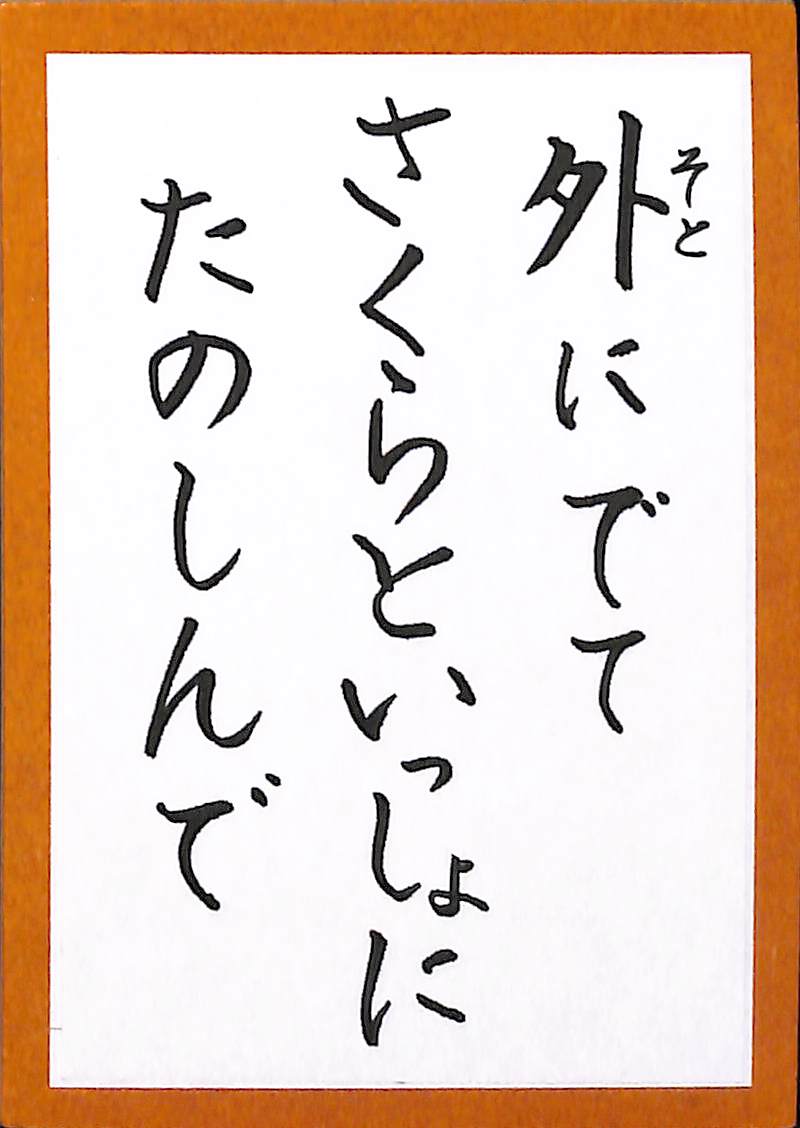 外にでて
そと
さくらといっしょに
たのしんで